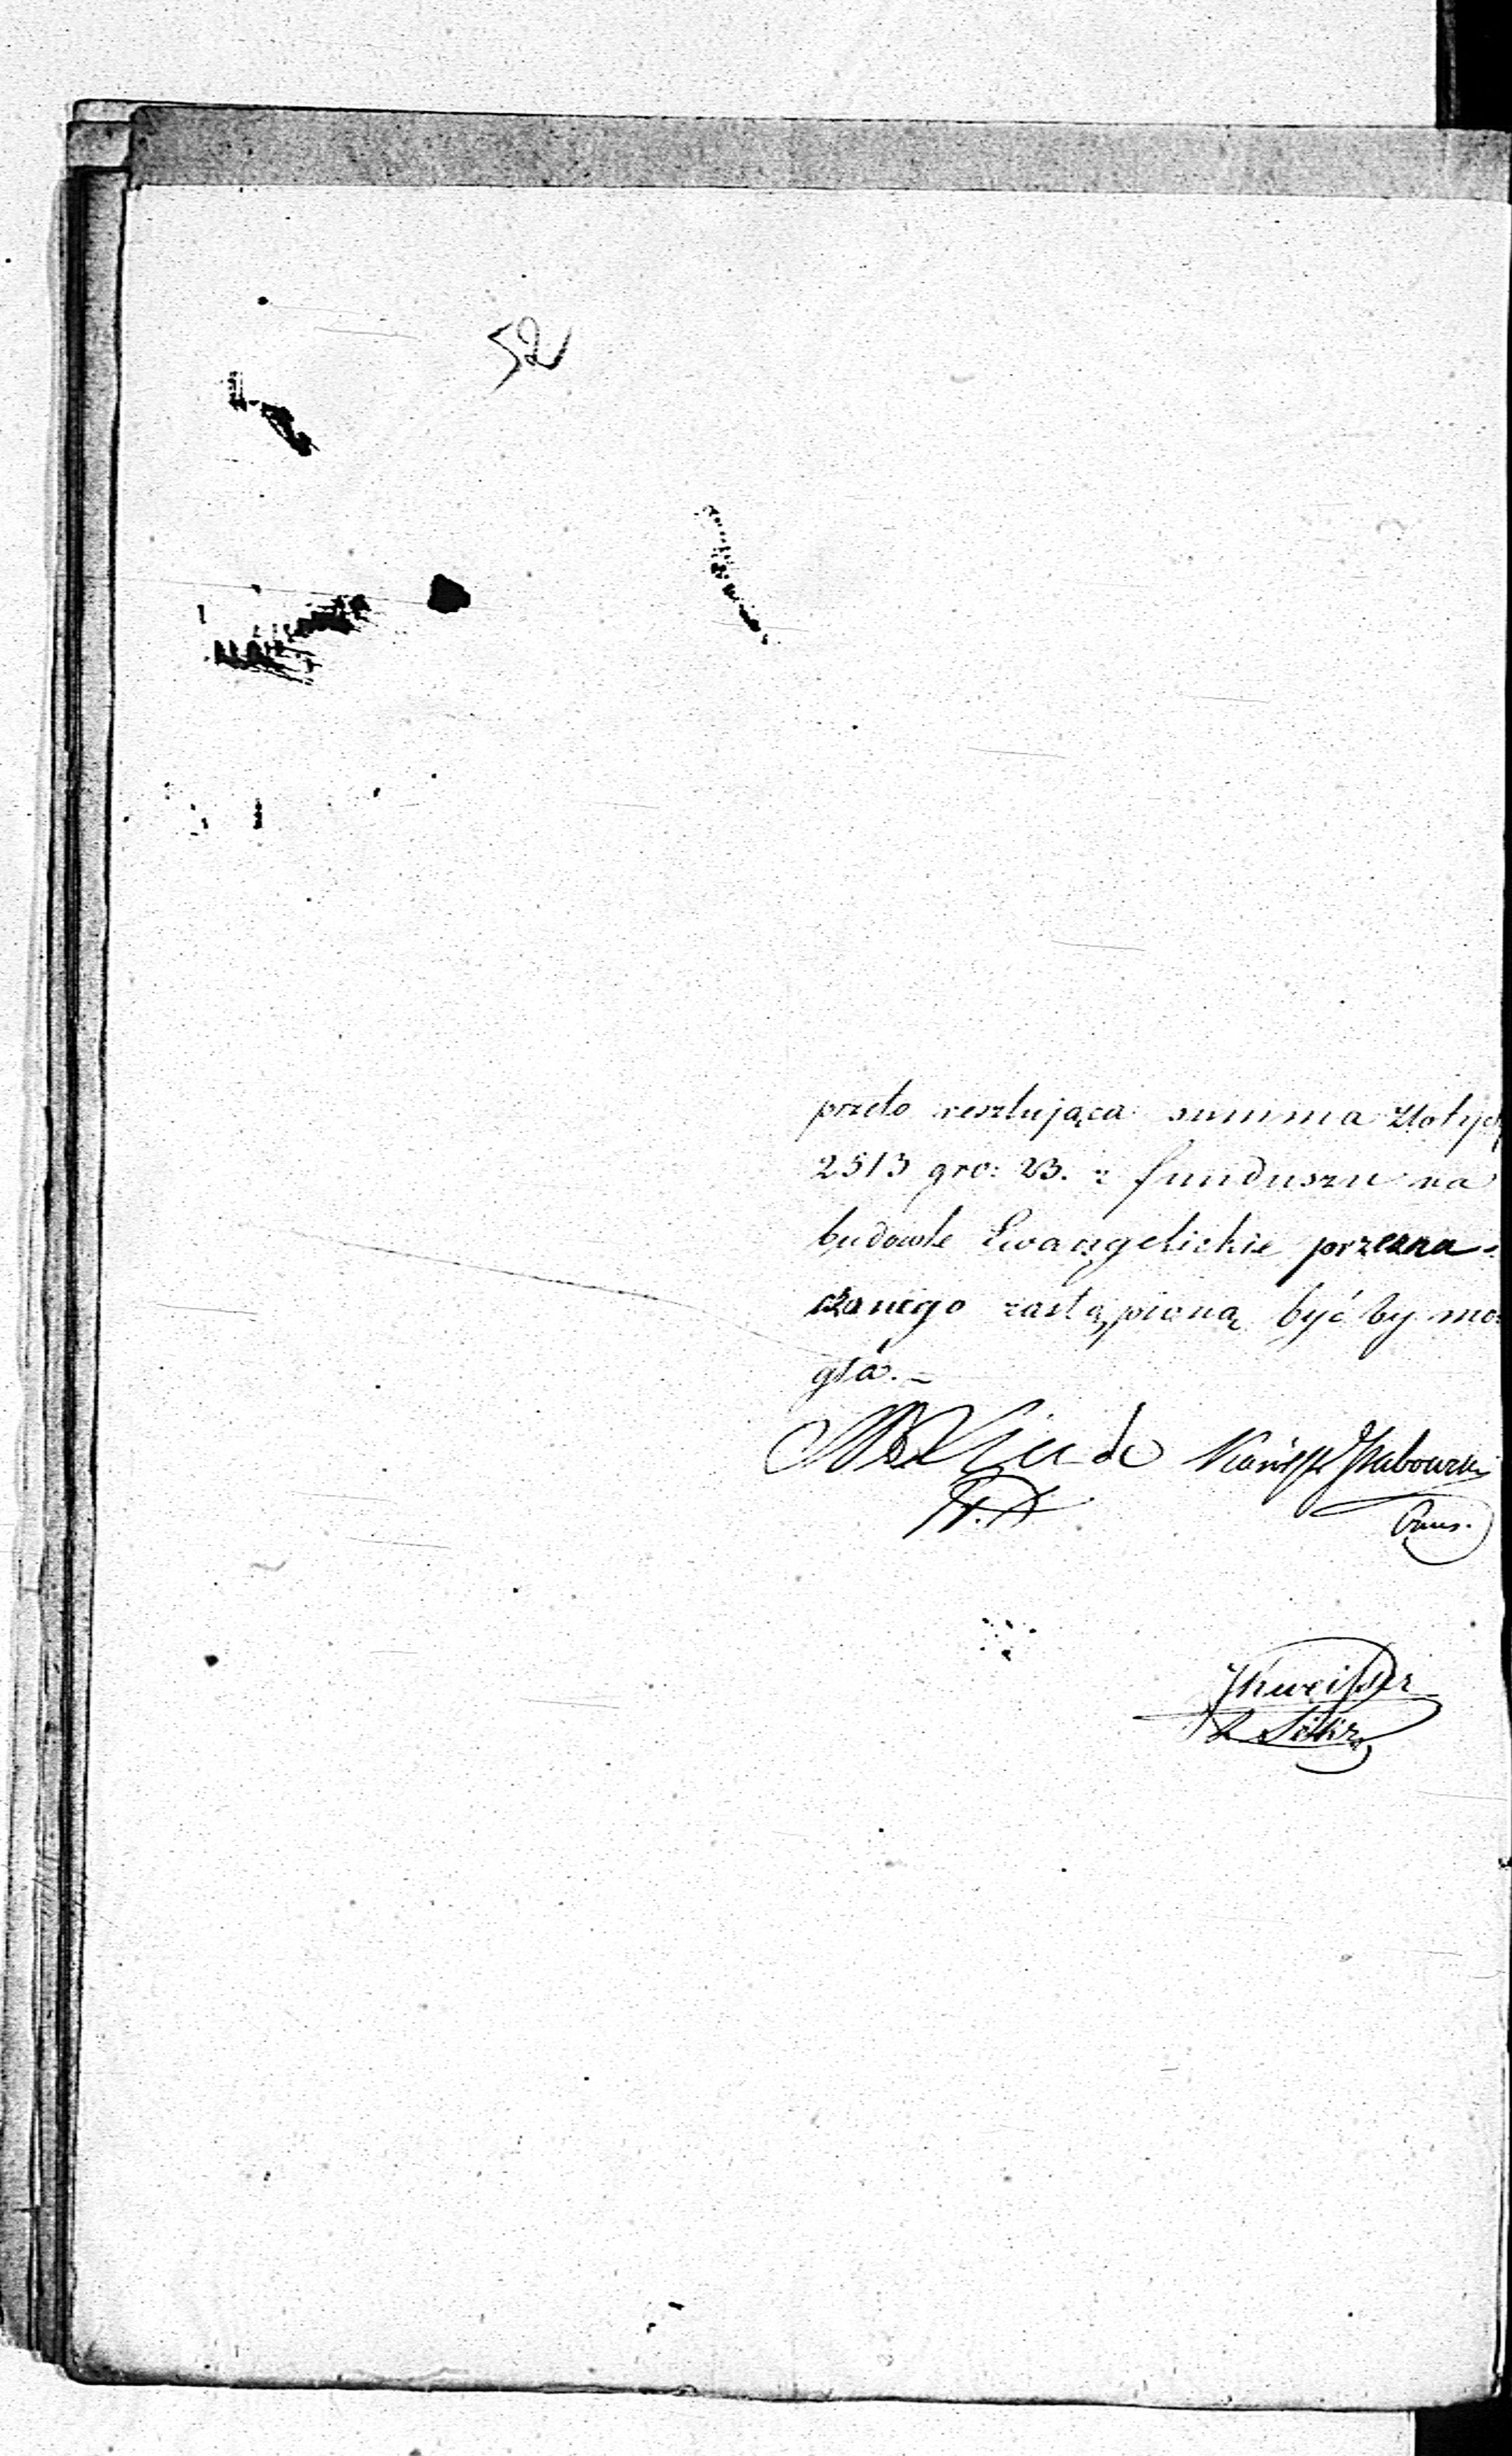 52
przeto resztująca summa złotych
2513 gro: 23. z funduszu na
budowle Ewangelickie przezna-
czonego zastąpioną być by mo
gła. –
Linde
Grabowski
Prus.